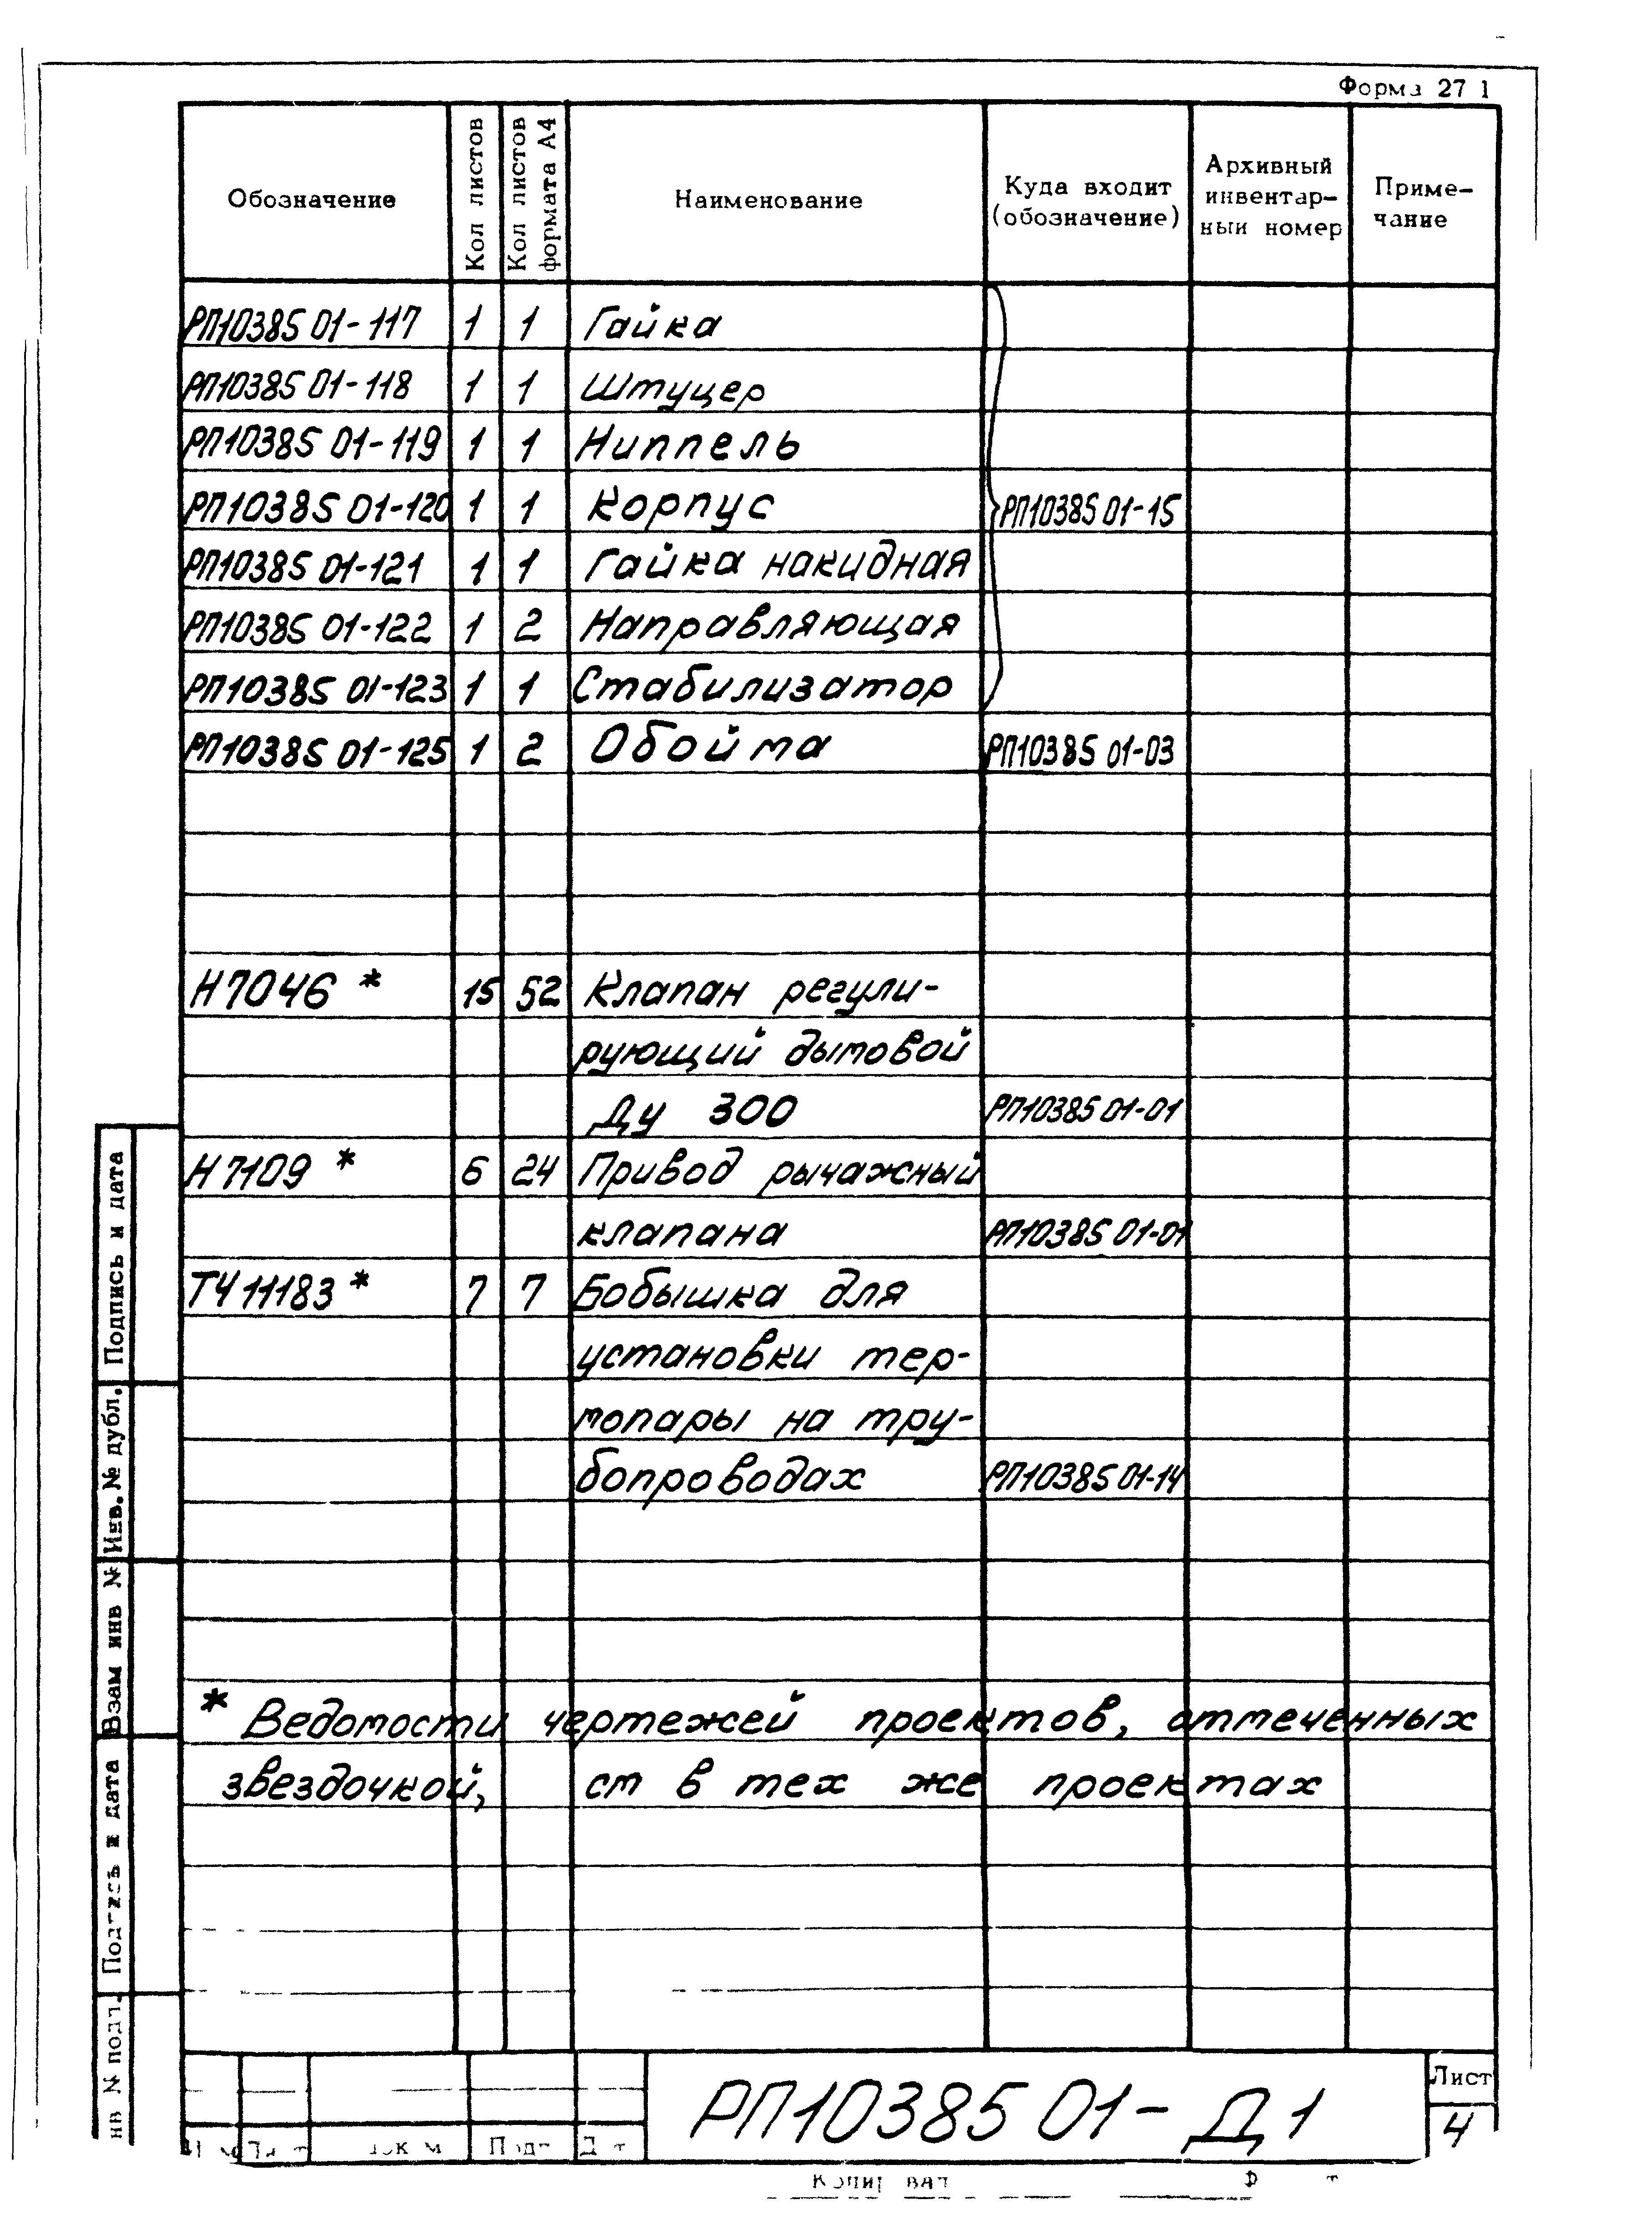 Форма 27 1
Обозначение
Кол листов
Кол листов
формата А4
Наименование
Куда входит
(обозначение)
Архивный
инвентар-
ный номер
Приме-
чание
РП10385 01-117 1 1 Гайка
РП10385 01-118 1 1 Штуцер
РП10385 01-119 1 1 Ниппель
РП10385 01-120 1 1 Корпус РП10385 01-15
РП10385 01-121 1 1 Гайка накидная
РП10385 01-122 1 2 Направляющая
РП10385 01-123 1 1 Стабилизатор
РП10385 01-125 1 2 Обойма РП10385 01-03
Н7046 * 15 52 Клапан регули-
рующий дымовой
Ду 300 РП10385 01-01
Н7109 * 6 24 Привод рычажный
клапана РП10385 01-01
ТЧ11183 * 7 7 Бобышка для
установки тер-
мопары на тру-
бопроводах РП10385 01-14
* Ведомости чертежей проектов, отмеченных
звездочкой, см в тех же проектах
Подпись и дата
Инв. № дубл.
Взам инв №
Подпись и дата
№ подл.
РП10385 01-Д1
Лист
4